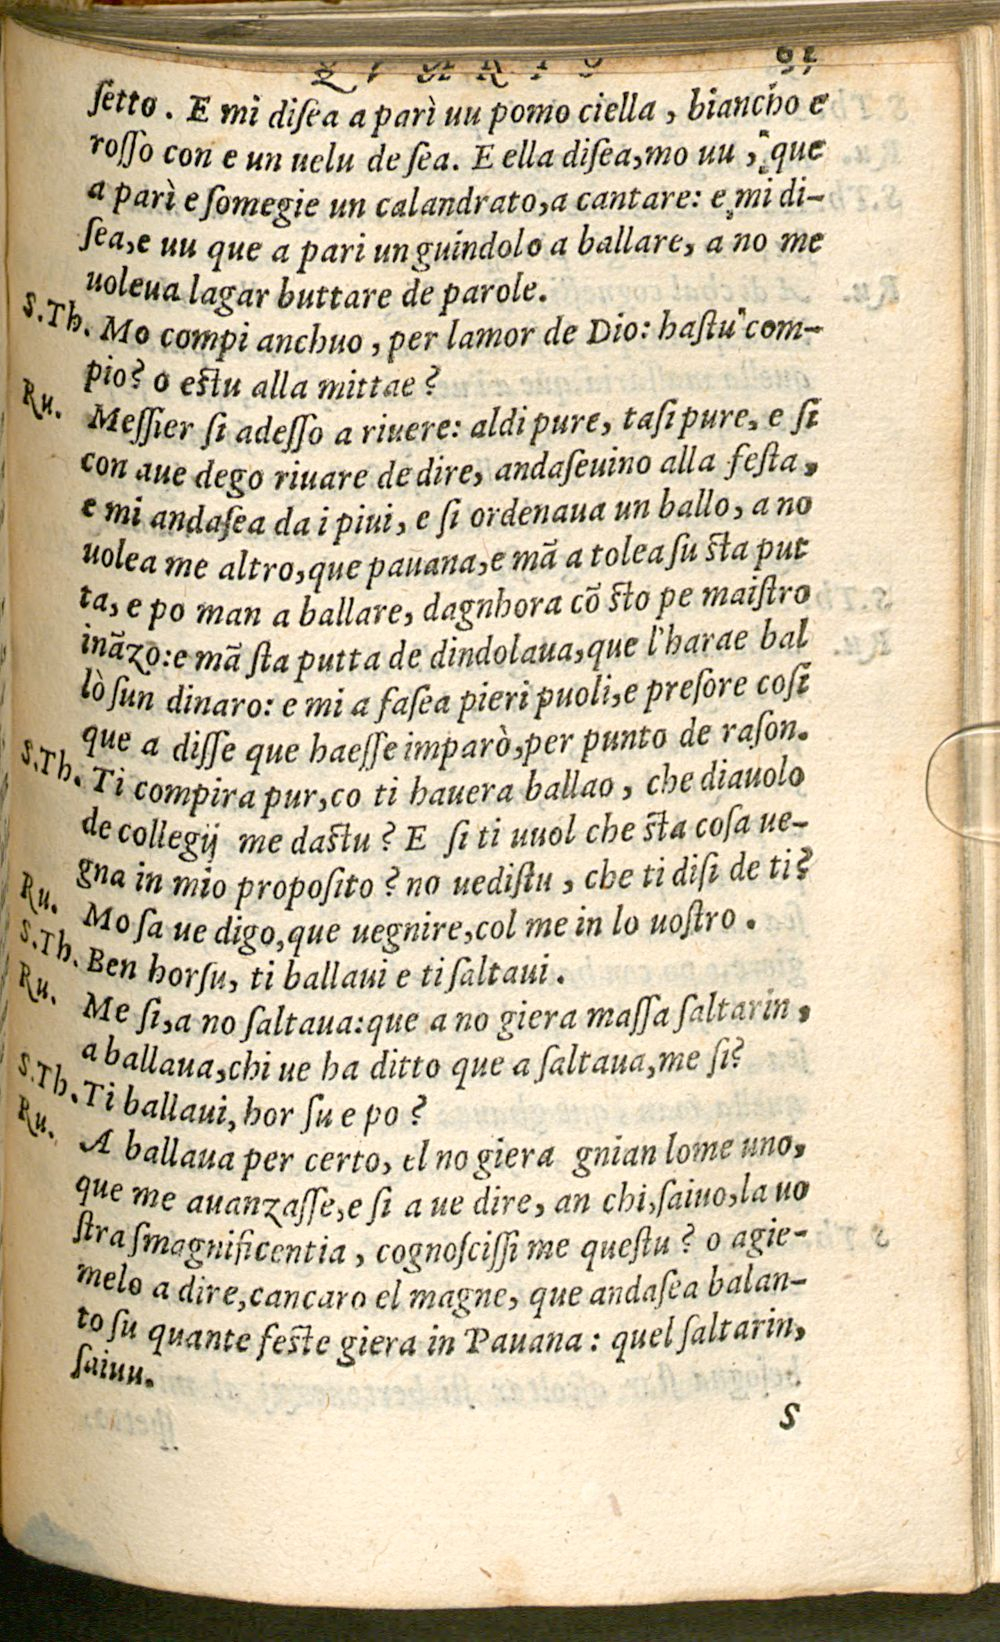 ſetto. E mi diſea a parì uu pomo ciella, biancho e
roſſo con e un uelu de ſea. E ella diſea, mo uu, que
a parì e ſomegie un calandrato, a cantare: e, mi di-
ſea, e uu que a pari un guindolo a ballare, a no me
uoleua lagar buttare de parole.
S.Th. Mo compi anchuo, per lamor de Dio: haſtu com-
pio? o eſtu alla mittae?
Ru. Meſſier ſi adeſſo a riuere: aldi pure, taſi pure, e ſi
con aue dego riuare de dire, andaſeuino alla feſta,
e mi andaſea da i piui, e ſi ordenaua un ballo, a no
uolea me altro, que pauana, e mā a tolea ſu ſta put
ta, e po man a ballare, dagnhora cō ſto pe maiſtro
ināzo: e mā ſta putta de dindolaua, que l'harae bal
lò ſun dinaro: e mi a faſea pieri puoli, e preſore coſi
que a diſſe que haeſſe imparò, per punto de raſon.
S.Th. Ti compira pur, co ti hauera ballao, che diauolo
de collegij me daſtu? E ſi ti uuol che ſta coſa ue-
gna in mio propoſito? no uediſtu, che ti diſi de ti?
Ru. Mo ſa ue digo, que uegnire, col me in lo uoſtro.
S.Th. Ben horſu, ti ballaui e ti ſaltaui.
Ru. Me ſi, a no ſaltaua: que a no giera maſſa ſaltarin,
a ballaua, chi ue ha ditto que a ſaltaua, me ſi?
S.Th. Ti ballaui, hor ſu e po?
Ru. A ballaua per certo, el no giera gnian lome uno,
que me auanzaſſe, e ſi a ue dire, an chi, ſaiuo, la uo
ſtra ſmagnificentia, cognoſciſſi me queſtu? o agie-
melo a dire, cancaro el magne, que andaſea balan-
to ſu quante feſte giera in Pauana: quel ſaltarin,
ſaiuu.
S